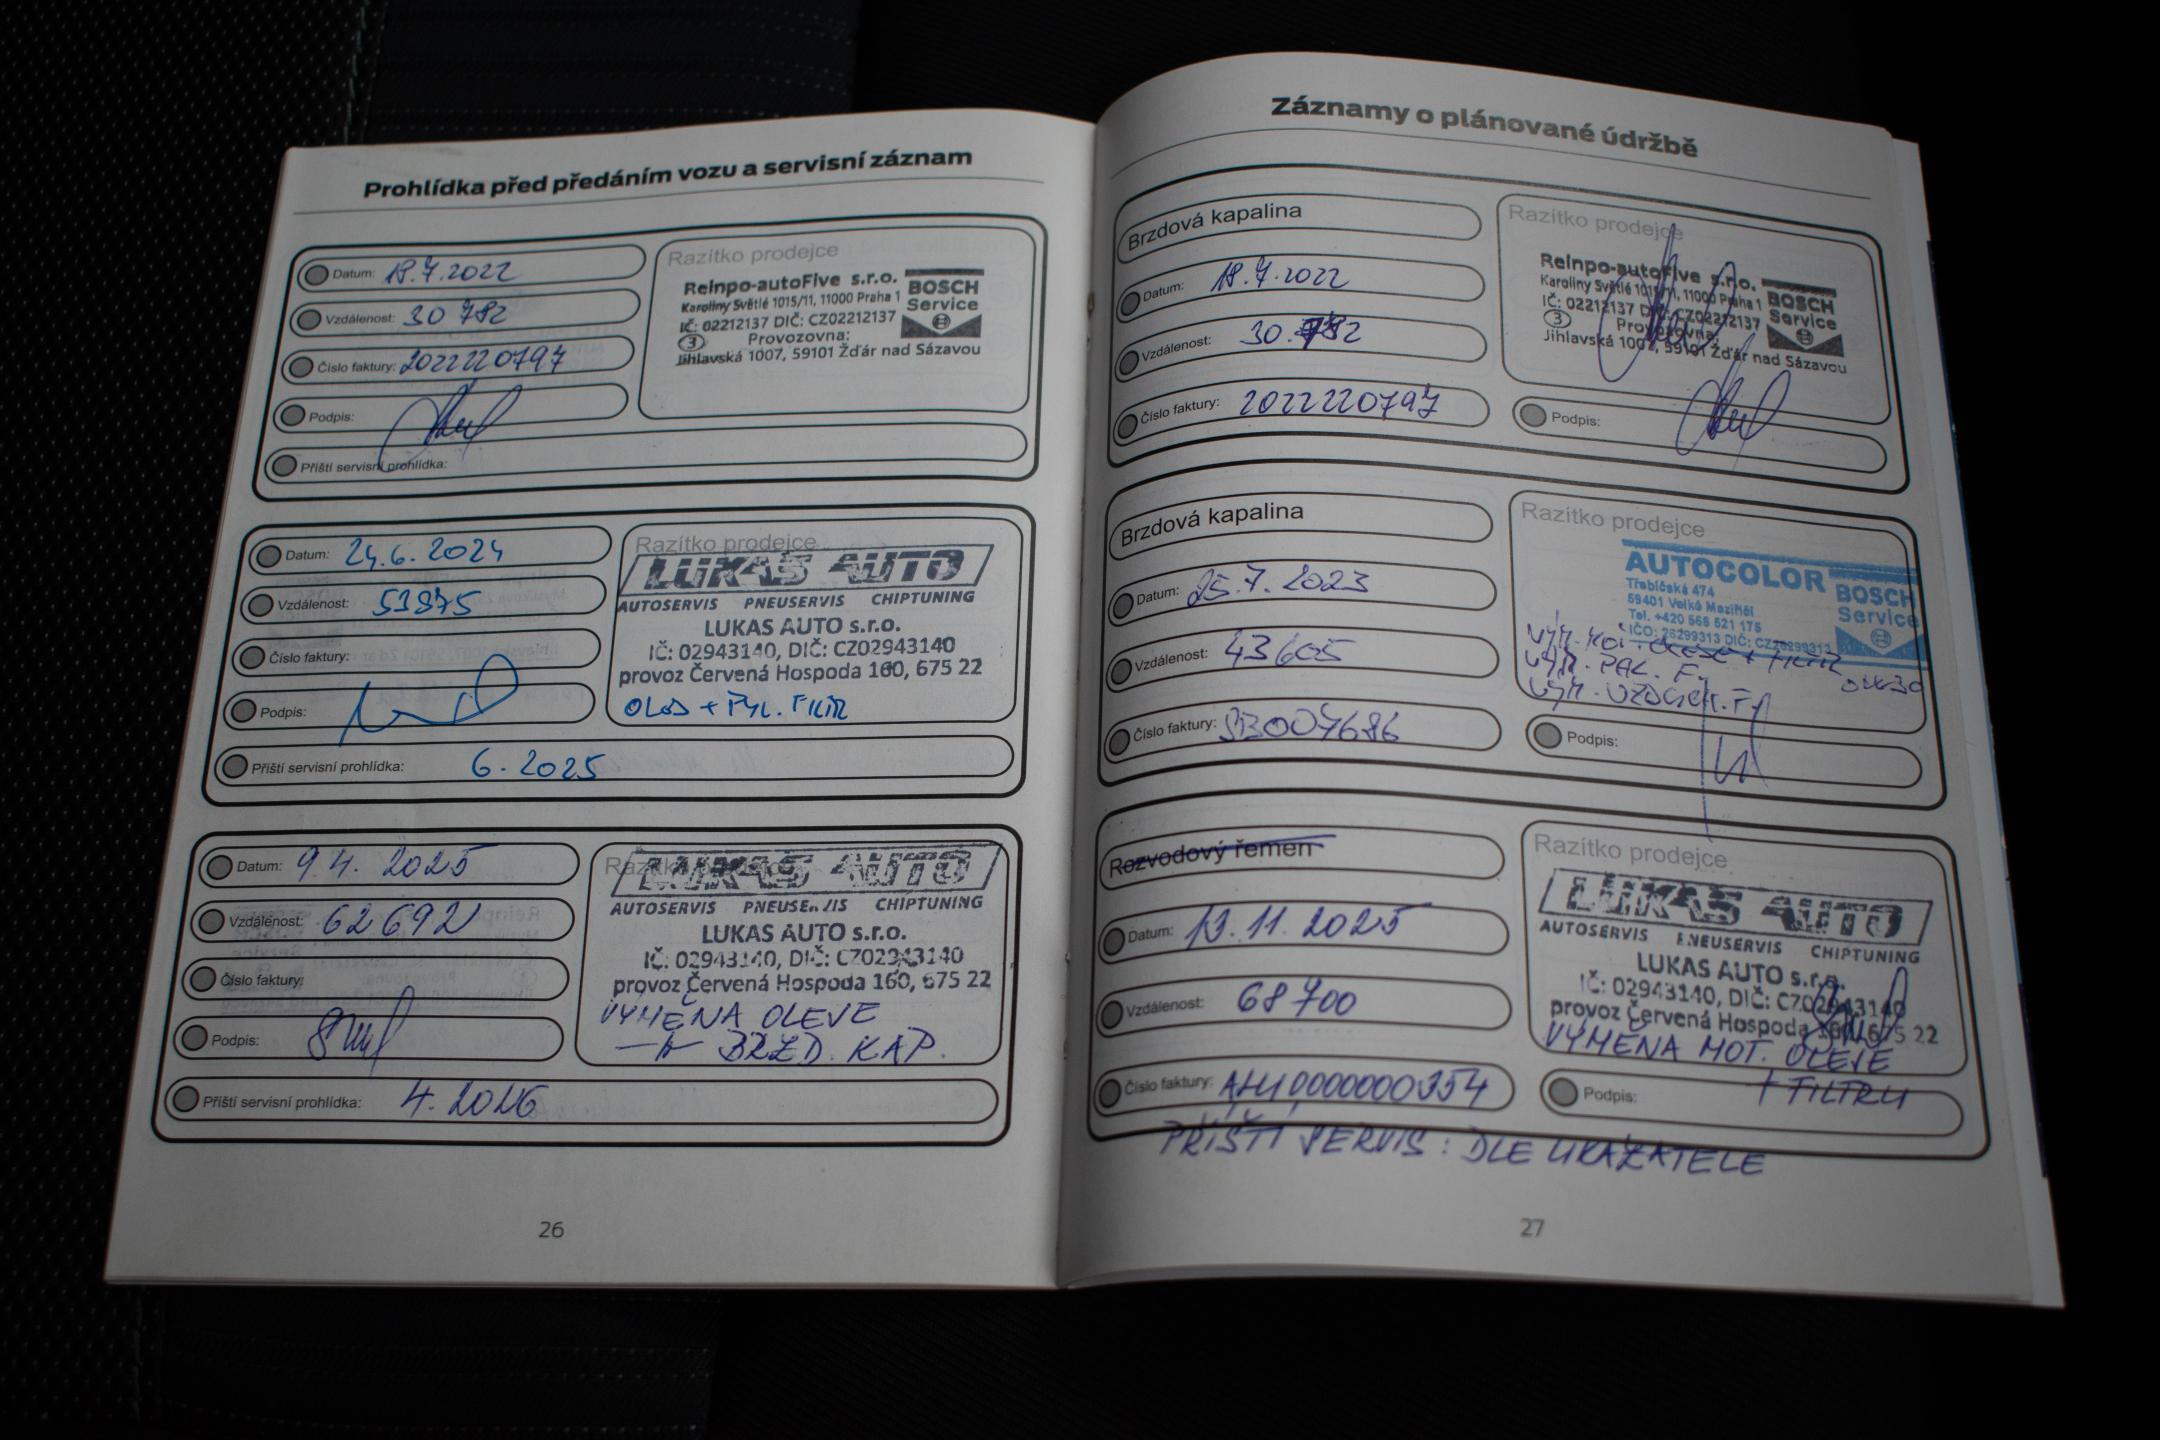 Prohlídka před předáním vozu a servisní záznam
Datum: 18.7.2022
Vzdálenost: 30 782
Číslo faktury: 2022220797
Podpis:
Příští servisní prohlídka:
Razítko prodejce
Reinpo-autoFive s.r.o.
Karoliny Světlé 1015/11, 11000 Praha 1
IČ: 02212137 DIČ: CZ02212137
3 Provozovna:
Jihlavská 1007, 59101 Žďár nad Sázavou
BOSCH
Service
Datum: 24.6.2024
Vzdálenost: 51875
Číslo faktury:
Podpis:
Příští servisní prohlídka: 6.2025
Razítko prodejce
LUKAS AUTO
AUTOSERVIS PNEUSERVIS CHIPTUNING
LUKAS AUTO s.r.o.
IČ: 02943140, DIČ: CZ02943140
provoz Červená Hospoda 160, 675 22
OLEJ + PYL. FILTR
Datum: 9.4. 2025
Vzdálenost: 62692
Číslo faktury:
Podpis:
Příští servisní prohlídka: 4.2026
LUKAS AUTO
AUTOSERVIS PNEUSERVIS CHIPTUNING
LUKAS AUTO s.r.o.
IČ: 02943140, DIČ: CZ02943140
provoz Červená Hospoda 160, 675 22
VÝMĚNA OLEJE
—||— BRZD. KAP.
26
Záznamy o plánované údržbě
Brzdová kapalina
Datum: 18.7.2022
Vzdálenost: 30.782
Číslo faktury: 2022220797
Razítko prodejce
Reinpo-autoFive s.r.o.
Karoliny Světlé 1015/11, 11000 Praha 1
IČ: 02212137 DIČ: CZ02212137
3 Provozovna:
Jihlavská 1007, 59101 Žďár nad Sázavou
BOSCH
Service
Podpis:
Brzdová kapalina
Datum: 25.7.2023
Vzdálenost: 43605
Číslo faktury:
Razítko prodejce
AUTOCOLOR
Třebíčská 474
59401 Velké Meziříčí
Tel. +420 566 521 175
IČO: 26299313 DIČ: CZ26299313
BOSCH
Service
VÝM. MOT. OLEJE + FILTR
0W30
VÝM. PAL. F.
VÝM. VZDUCH. F.
Podpis:
Rozvodový řemen
Datum: 13.11.2025
Vzdálenost: 68700
Číslo faktury:
Razítko prodejce
LUKAS AUTO
AUTOSERVIS PNEUSERVIS CHIPTUNING
LUKAS AUTO s.r.o.
IČ: 02943140, DIČ: CZ02943140
provoz Červená Hospoda 160, 675 22
VÝMĚNA MOT. OLEJE
+ FILTRU
Podpis:
PŘÍŠTÍ SERVIS: DLE UKAZATELE
27